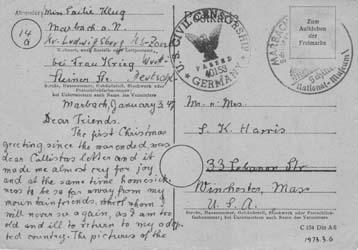 Absender: Miss Emilie Klug
14a
Marbach a. N.
Kr. Ludwigsberg US-Zone
bei Frau Krieg
Steiner Str.
Straße, Hausnummer, Gebäudeteil, Stockwerk oder Postschließfachnummer;
bei Untermietern auch Name des Vermieters
Marbach, January 3. 47
Dear Friends.
The first Christmas
greeting since the war ended was
dear Callistas letter and it
made me almost cry for joy
and at the same time homesick-
ness to be so far away from my
mountain friends, which whom I
will never see again, as I am too
old and ill to return to my adop-
ted country. The pictures of the
Postkarte
U.S. CIVIL CENSORSHIP
PASSED
40153
GERMANY
MARBACH
Schiller
National-Museum
Zum
Aufkleben
der
Freimarke
Mr. u. Mrs.
S. K. Harris
33 Lebanon Str
Straße, Hausnummer, Gebäudeteil, Stockwerk oder Postschließfach-
nummer; bei Untermietern auch Name des Vermieters
Winchester, Mass
U.S.A.
C 154 Din A6
1973.3.6